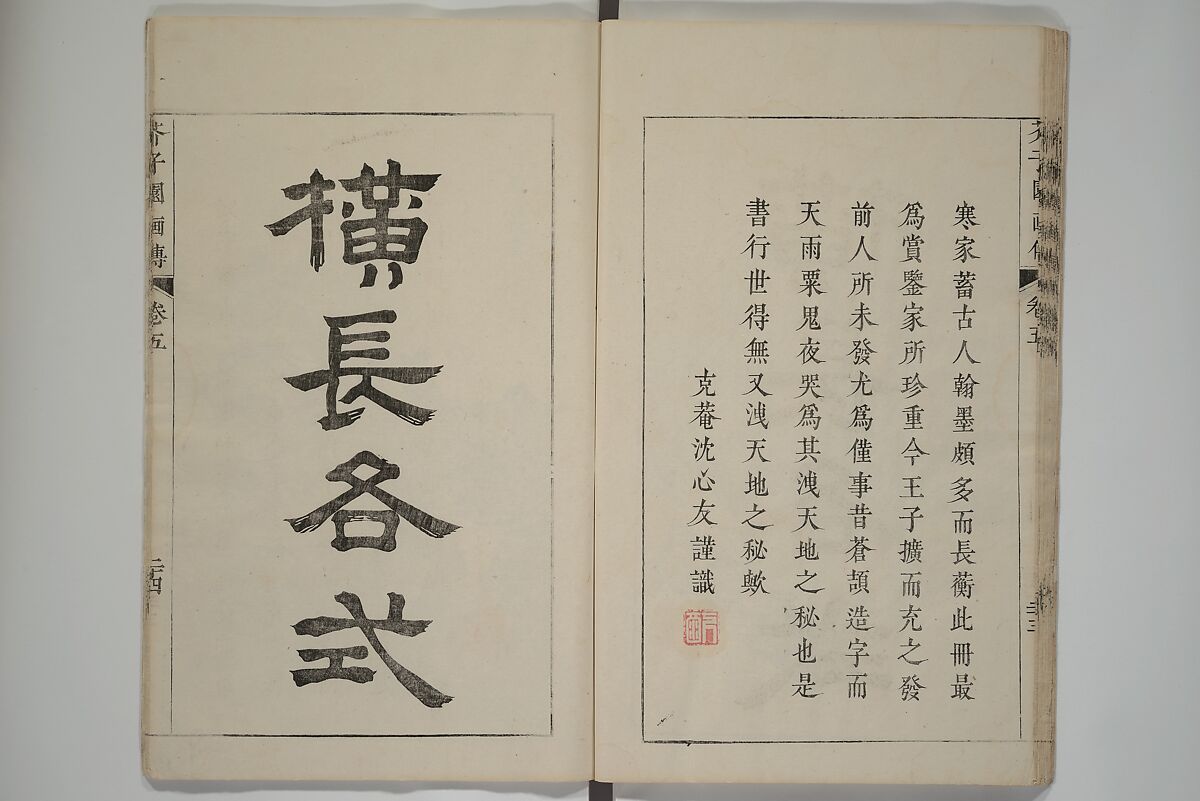 寒家蓄古人翰墨頗多而長蘅此冊最
為賞鑒家所珍重今王子擴而充之發
前人所未發尤為僅事昔蒼頡造字而
天雨粟鬼夜哭為其洩天地之秘也是
書行世得無又洩天地之秘歟
克菴沈心友謹識
橫長各式
芥子園画傳
卷五
二十四